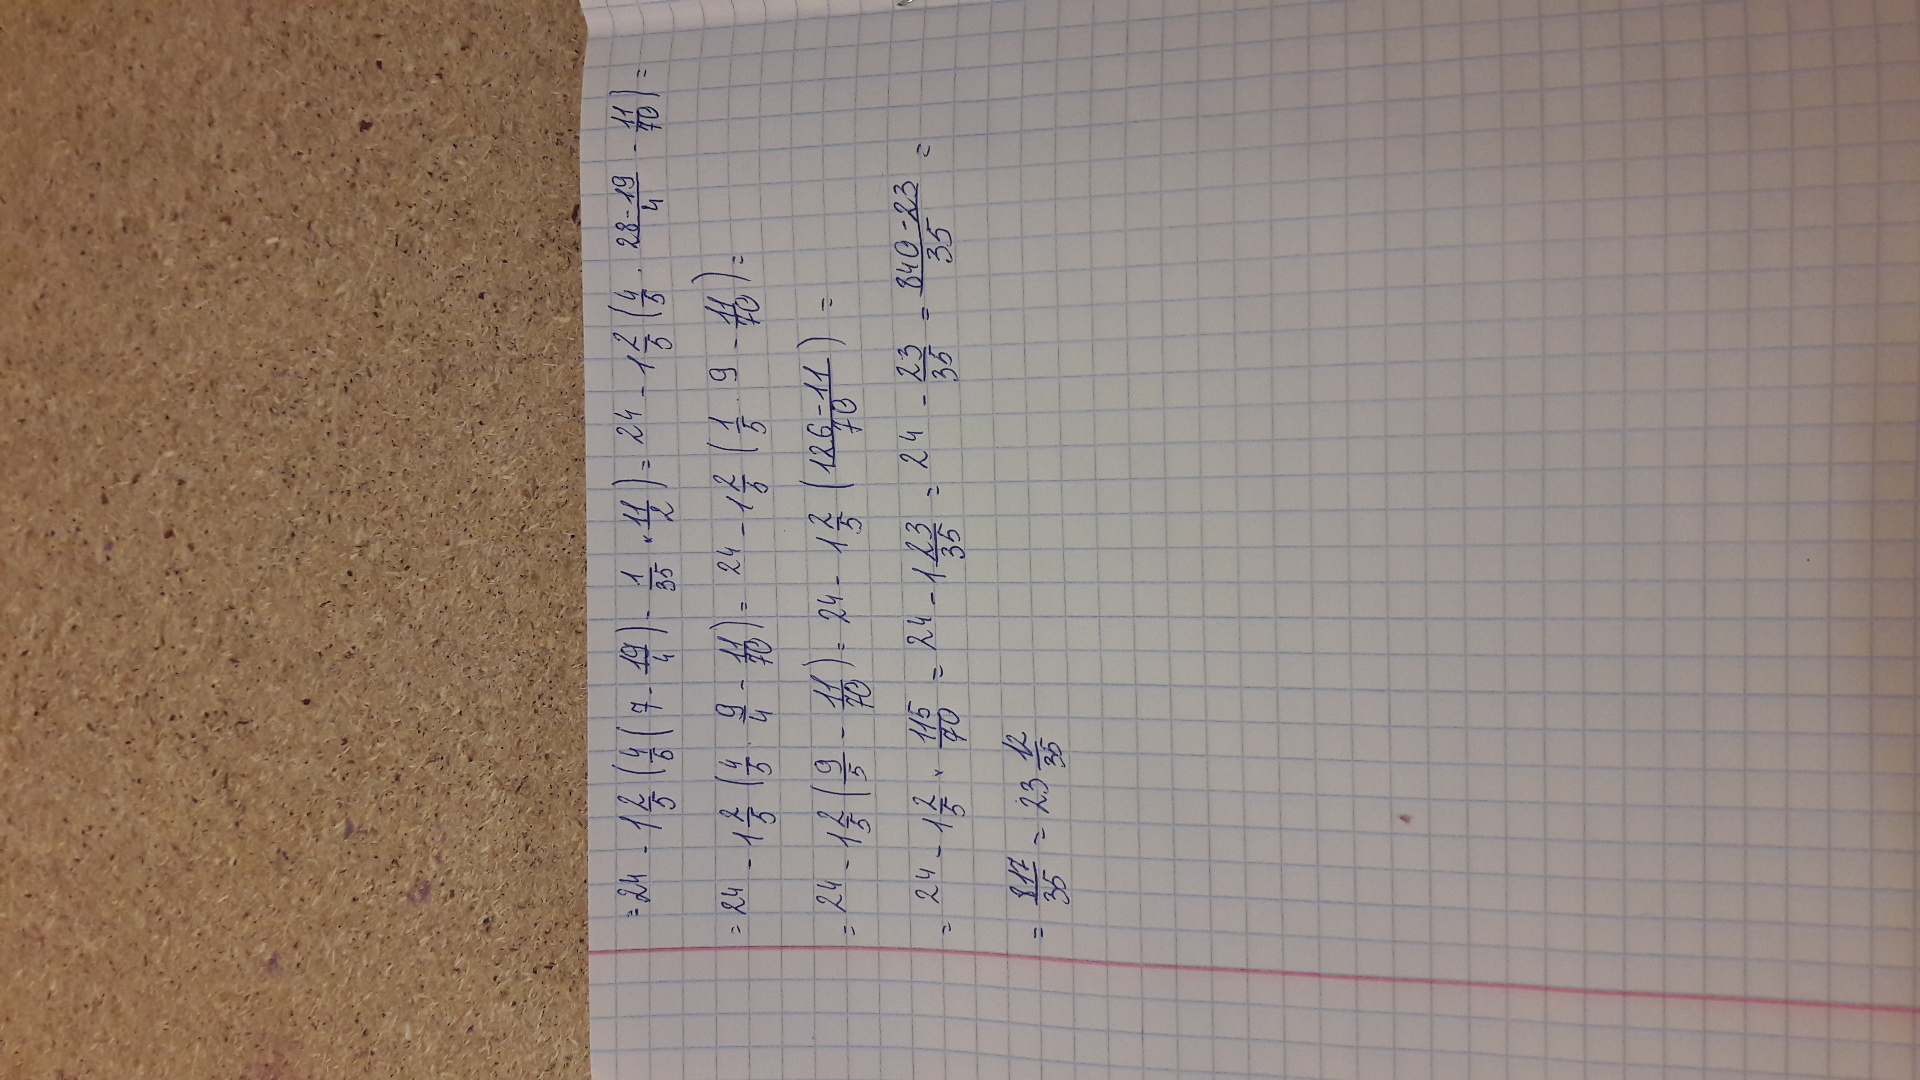 = 24 - 1 2/5 (4/5 (7 - 19/4) - 1/35 × 11/2) = 24 - 1 2/5 (4/5 · (28-19)/4 - 11/70) =
= 24 - 1 2/5 (4/5 · 9/4 - 11/70) = 24 - 1 2/5 (1/5 · 9 - 11/70) =
= 24 - 1 2/5 (9/5 - 11/70) = 24 - 1 2/5 ((126-11)/70) =
= 24 - 1 2/5 × 115/70 = 24 - 1 23/35 = 24 - 23/35 = (840-23)/35 =
= 817/35 = 23 12/35